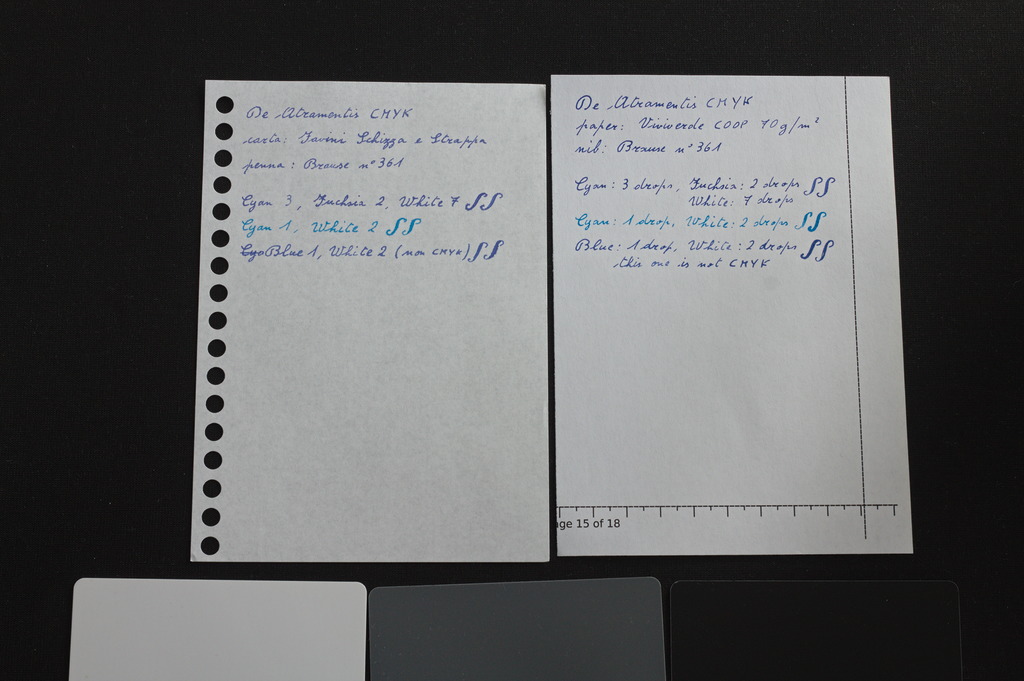 De Atramentis CMYK
carta: Favini Schizza e Strappa
penna: Brause n° 361
Cyan 3, Fuchsia 2, White 7 SS
Cyan 1, White 2 SS
Cya Blue 1, White 2 (non CMYK) SS
De Atramentis CMYK
paper: Viviverde COOP 70g/m²
nib: Brause n° 361
Cyan: 3 drops, Fuchsia: 2 drops SS
White: 7 drops
Cyan: 1 drop, White: 2 drops SS
Blue: 1 drop, White: 2 drops SS
this one is not CMYK
age 15 of 18